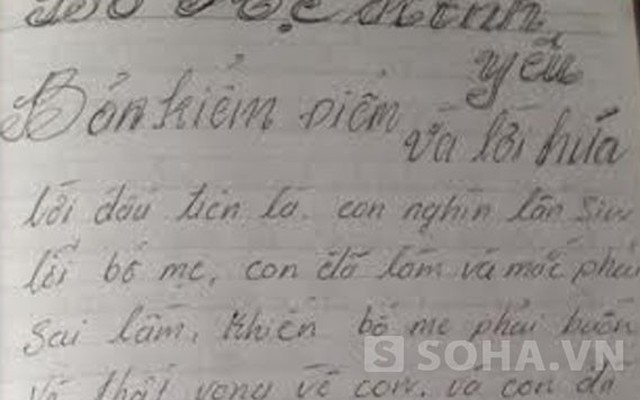 Bố Mẹ kính
yếu
Bản kiểm điểm
và lời hứa
lời đầu tiên là con nghìn lần xin
lỗi bố mẹ, con đã làm và mắc phải
sai lầm, khiến bố mẹ phải buồn
SOHA.VN
và thất vọng về con. và con đã